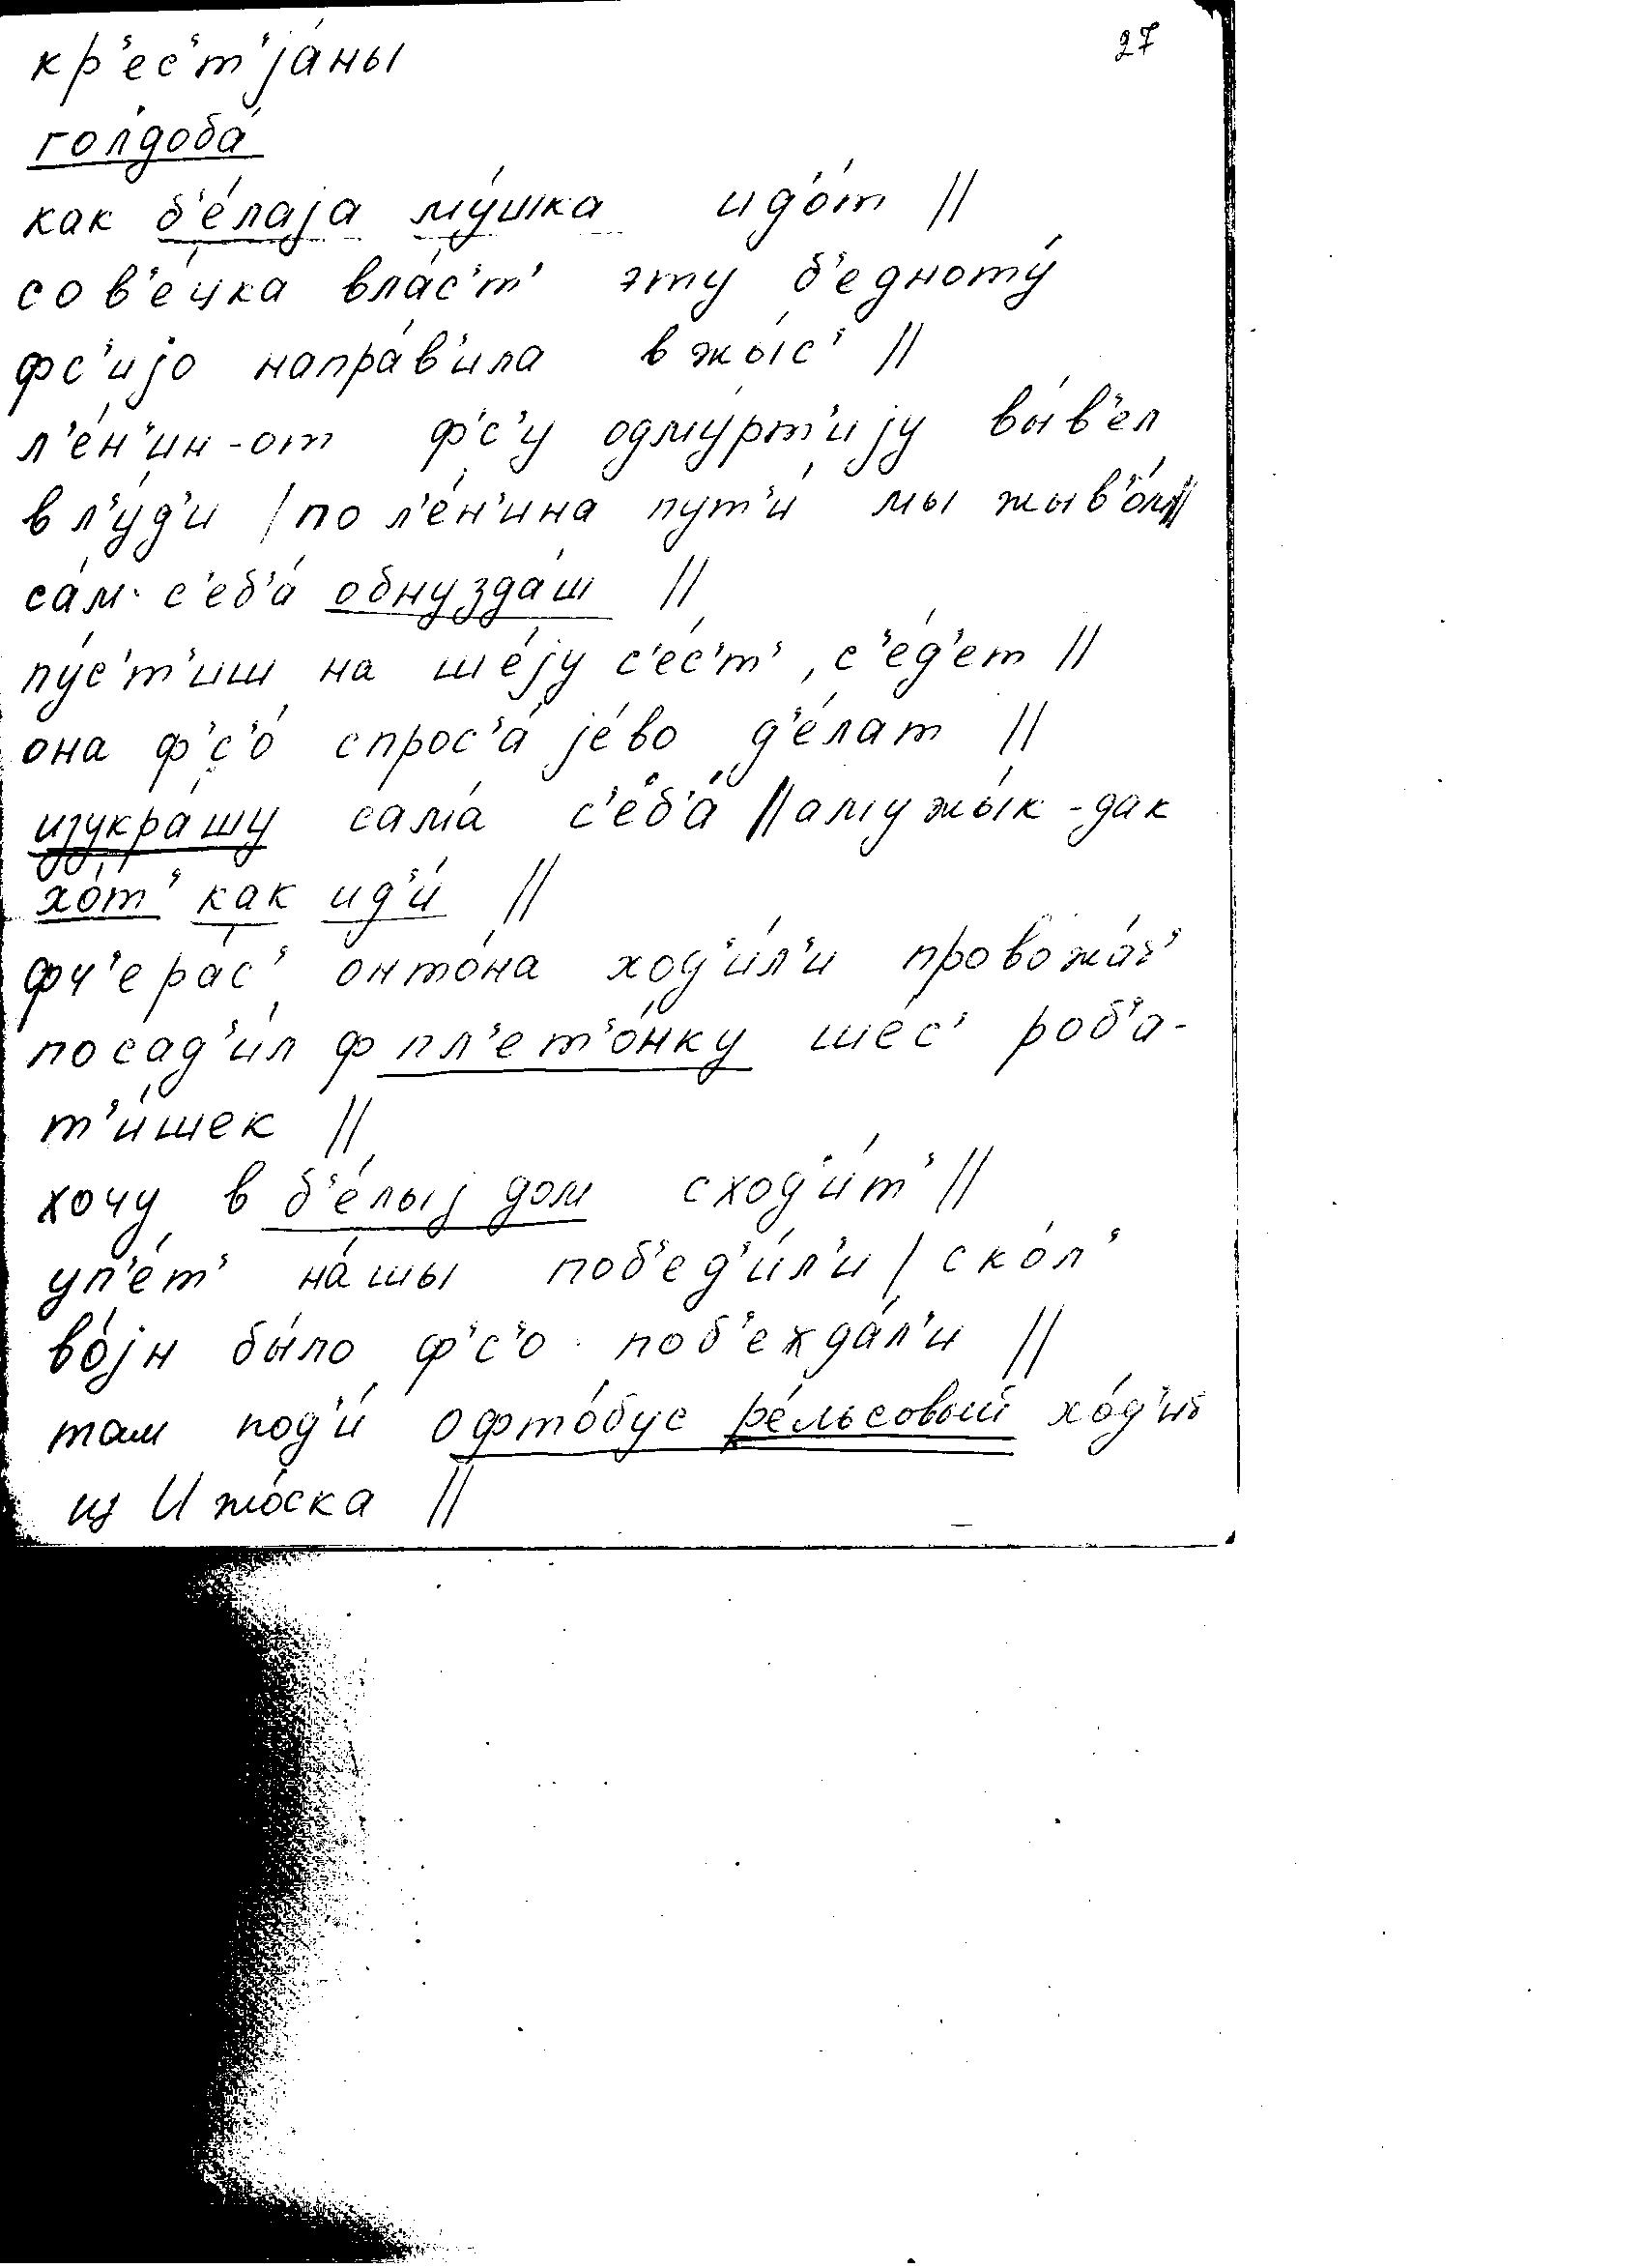 27
кр'ес'т'jа́ны
голдоба́
как б'е́лаjа му́шка ид'о́т //
сов'е́цка вла́с'т' эту б'едноту́
фс'иjо напра́в'ила в жы́с' //
л'е́н'ин-от ф'с'у одму́рт'иjу вы́в'ел
в л'у́д'и / по л'е́н'ина пут'и́ мы жыв'о́м //
са́м с'еб'а́ обнузда́ш //
пу́с'т'иш на ше́jу с'е́с'т', с'е́д'ет //
она ф'с'о́ спрос'а́ jе́во д'е́лат //
изукра́шу сама́ с'еб'а́ // а мужы́к-дак
хо́т' как ид'и́ //
фч'ера́с' онто́на ход'и́л'и провожа́т'
посад'и́л ф пл'ет'о́нку ше́с' роб'а-
т'и́шек //
хочу в б'е́лыj дом сход'и́т' //
уп'е́т' на́шы поб'ед'и́л'и / ско́л'
во́jн бы́ло ф'с'о поб'еждал'и //
там под'и́ офто́бус ре́льсовый хо́д'ит
из Ижо́ска //